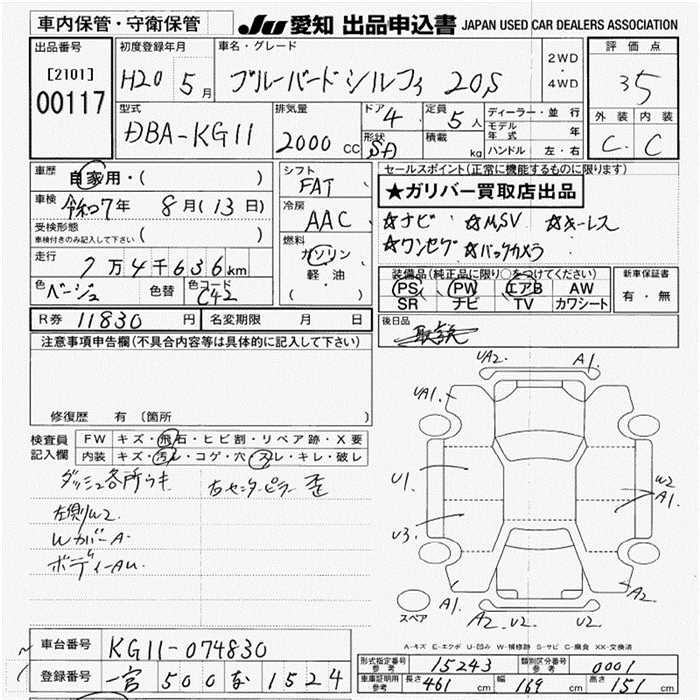 車内保管・守衛保管 JU 愛知 出品申込書 JAPAN USED CAR DEALERS ASSOCIATION
出品番号 初度登録年月 車名・グレード 2WD ・ 4WD 評価点
[2101] H20 5月 ブルーバードシルフィ 20S 35
00117 型式 排気量 ドア 定員 ディーラー・並行 外装 内装
DBA-KG11 2000 CC 4 5人 モデル年式 年 C C
形状 SD 積載 kg ハンドル 左・右
車歴 自家用・( ) シフト FAT セールスポイント(正常に機能するものに限ります)
車検 令和7年 8月(13日) 冷房 AAC ★ガリバー買取店出品
受検形態 ( ) ☆ナビ ☆MSV ☆キーレス
車検付きのみ記入して下さい 燃料 ☆ワンセグ ☆バックカメラ
走行 7万4千636km ガソリン 装備品(純正品に限り○をつけてください) 新車保証書
色 ベージュ 色替 色コード C42 軽油 PS PW エアB AW 有・無
( ) SR ナビ TV カワシート
R券 11830 円 名変期限 月 日 後日品
注意事項申告欄(不具合内容等は具体的に記入して下さい) 取説
修復歴 有(箇所 )
検査員 FW キズ・飛石・ヒビ割・リペア跡・X要
記入欄 内装 キズ・汚レ・コゲ・穴・スレ・キレ・破レ
ダッシュ各所ウキ 右センターピラー歪
左側W2
WカバーA
ボディーAU
UA2. A1.
UA1.
U1 W2
A1.
U3.
A1 A1.
A2 U2 U2
スペア
A-キズ E-エクボ U-凹み W-補修跡 S-サビ C-腐食 XX-交換済
車台番号 KG11-074830
登録番号 一宮 500 な 1524
形式指定番号 参考 15243 類別区分番号 参考 0001
車庫証明用 参考 長さ 461 cm 幅 169 cm 高さ 151 cm